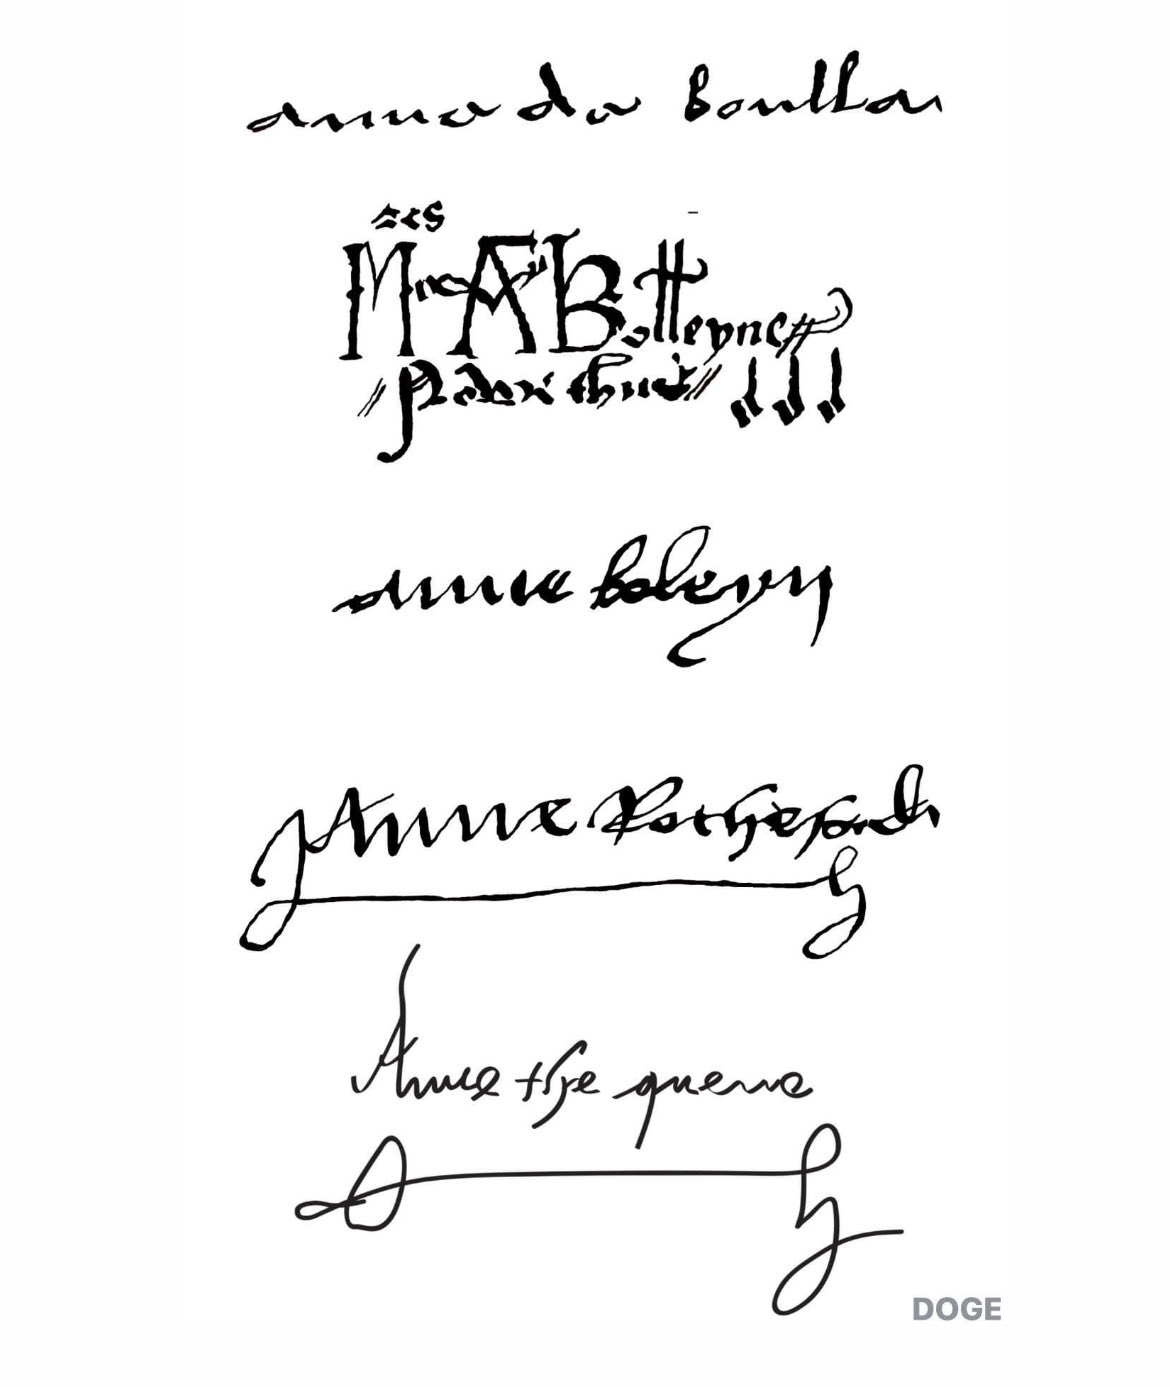 anna de Boullan
Mres Anne Bolleyne
anne boleyn
Anne Rocheford
Anne the quene
DOGE